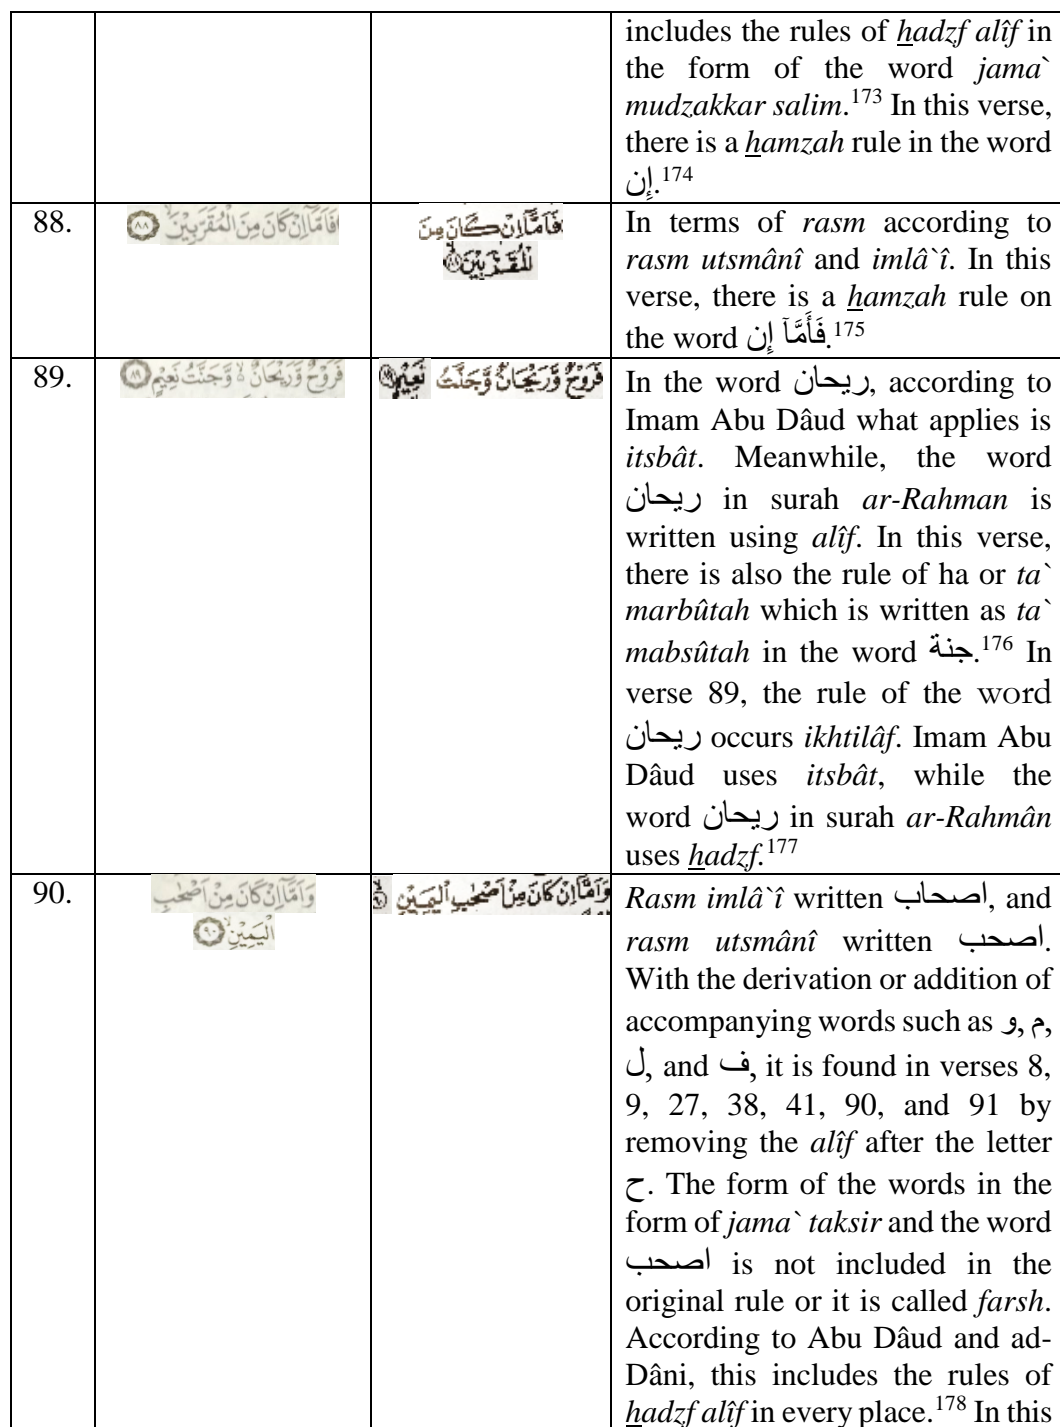 includes the rules of hadzf alîf in
the form of the word jama`
mudzakkar salim.173 In this verse,
there is a hamzah rule in the word
إن.174
88.
فَاَمَّآ اِنْ كَانَ مِنَ الْمُقَرَّبِيْنَۙ ۝٨٨
فَاَمَّآ اِنْ كَانَ مِنَ
الْمُقَرَّبِيْنَۙ ۝٨٨
In terms of rasm according to
rasm utsmânî and imlâ`î. In this
verse, there is a hamzah rule on
the word فَأَمَّآ إِن.175
89.
فَرَوْحٌ وَّرَيْحَانٌ ەۙ وَّجَنَّتُ نَعِيْمٍ ۝٨٩
فَرَوْحٌ وَّرَيْحَانٌ وَّجَنَّتُ نَعِيْمٍ ۝٨٩
In the word ريحان, according to
Imam Abu Dâud what applies is
itsbât. Meanwhile, the word
ريحان in surah ar-Rahman is
written using alîf. In this verse,
there is also the rule of ha or ta`
marbûtah which is written as ta`
mabsûtah in the word جنة.176 In
verse 89, the rule of the word
ريحان occurs ikhtilâf. Imam Abu
Dâud uses itsbât, while the
word ريحان in surah ar-Rahmân
uses hadzf.177
90.
وَاَمَّآ اِنْ كَانَ مِنْ اَصْحٰبِ
الْيَمِيْنِۙ ۝٩٠
وَاَمَّآ اِنْ كَانَ مِنْ اَصْحٰبِ الْيَمِيْنِۙ ۝٩٠
Rasm imlâ`î written اصحاب, and
rasm utsmânî written اصحب.
With the derivation or addition of
accompanying words such as م ,و,
ل, and ف, it is found in verses 8,
9, 27, 38, 41, 90, and 91 by
removing the alîf after the letter
ح. The form of the words in the
form of jama` taksir and the word
اصحب is not included in the
original rule or it is called farsh.
According to Abu Dâud and ad-
Dâni, this includes the rules of
hadzf alîf in every place.178 In this